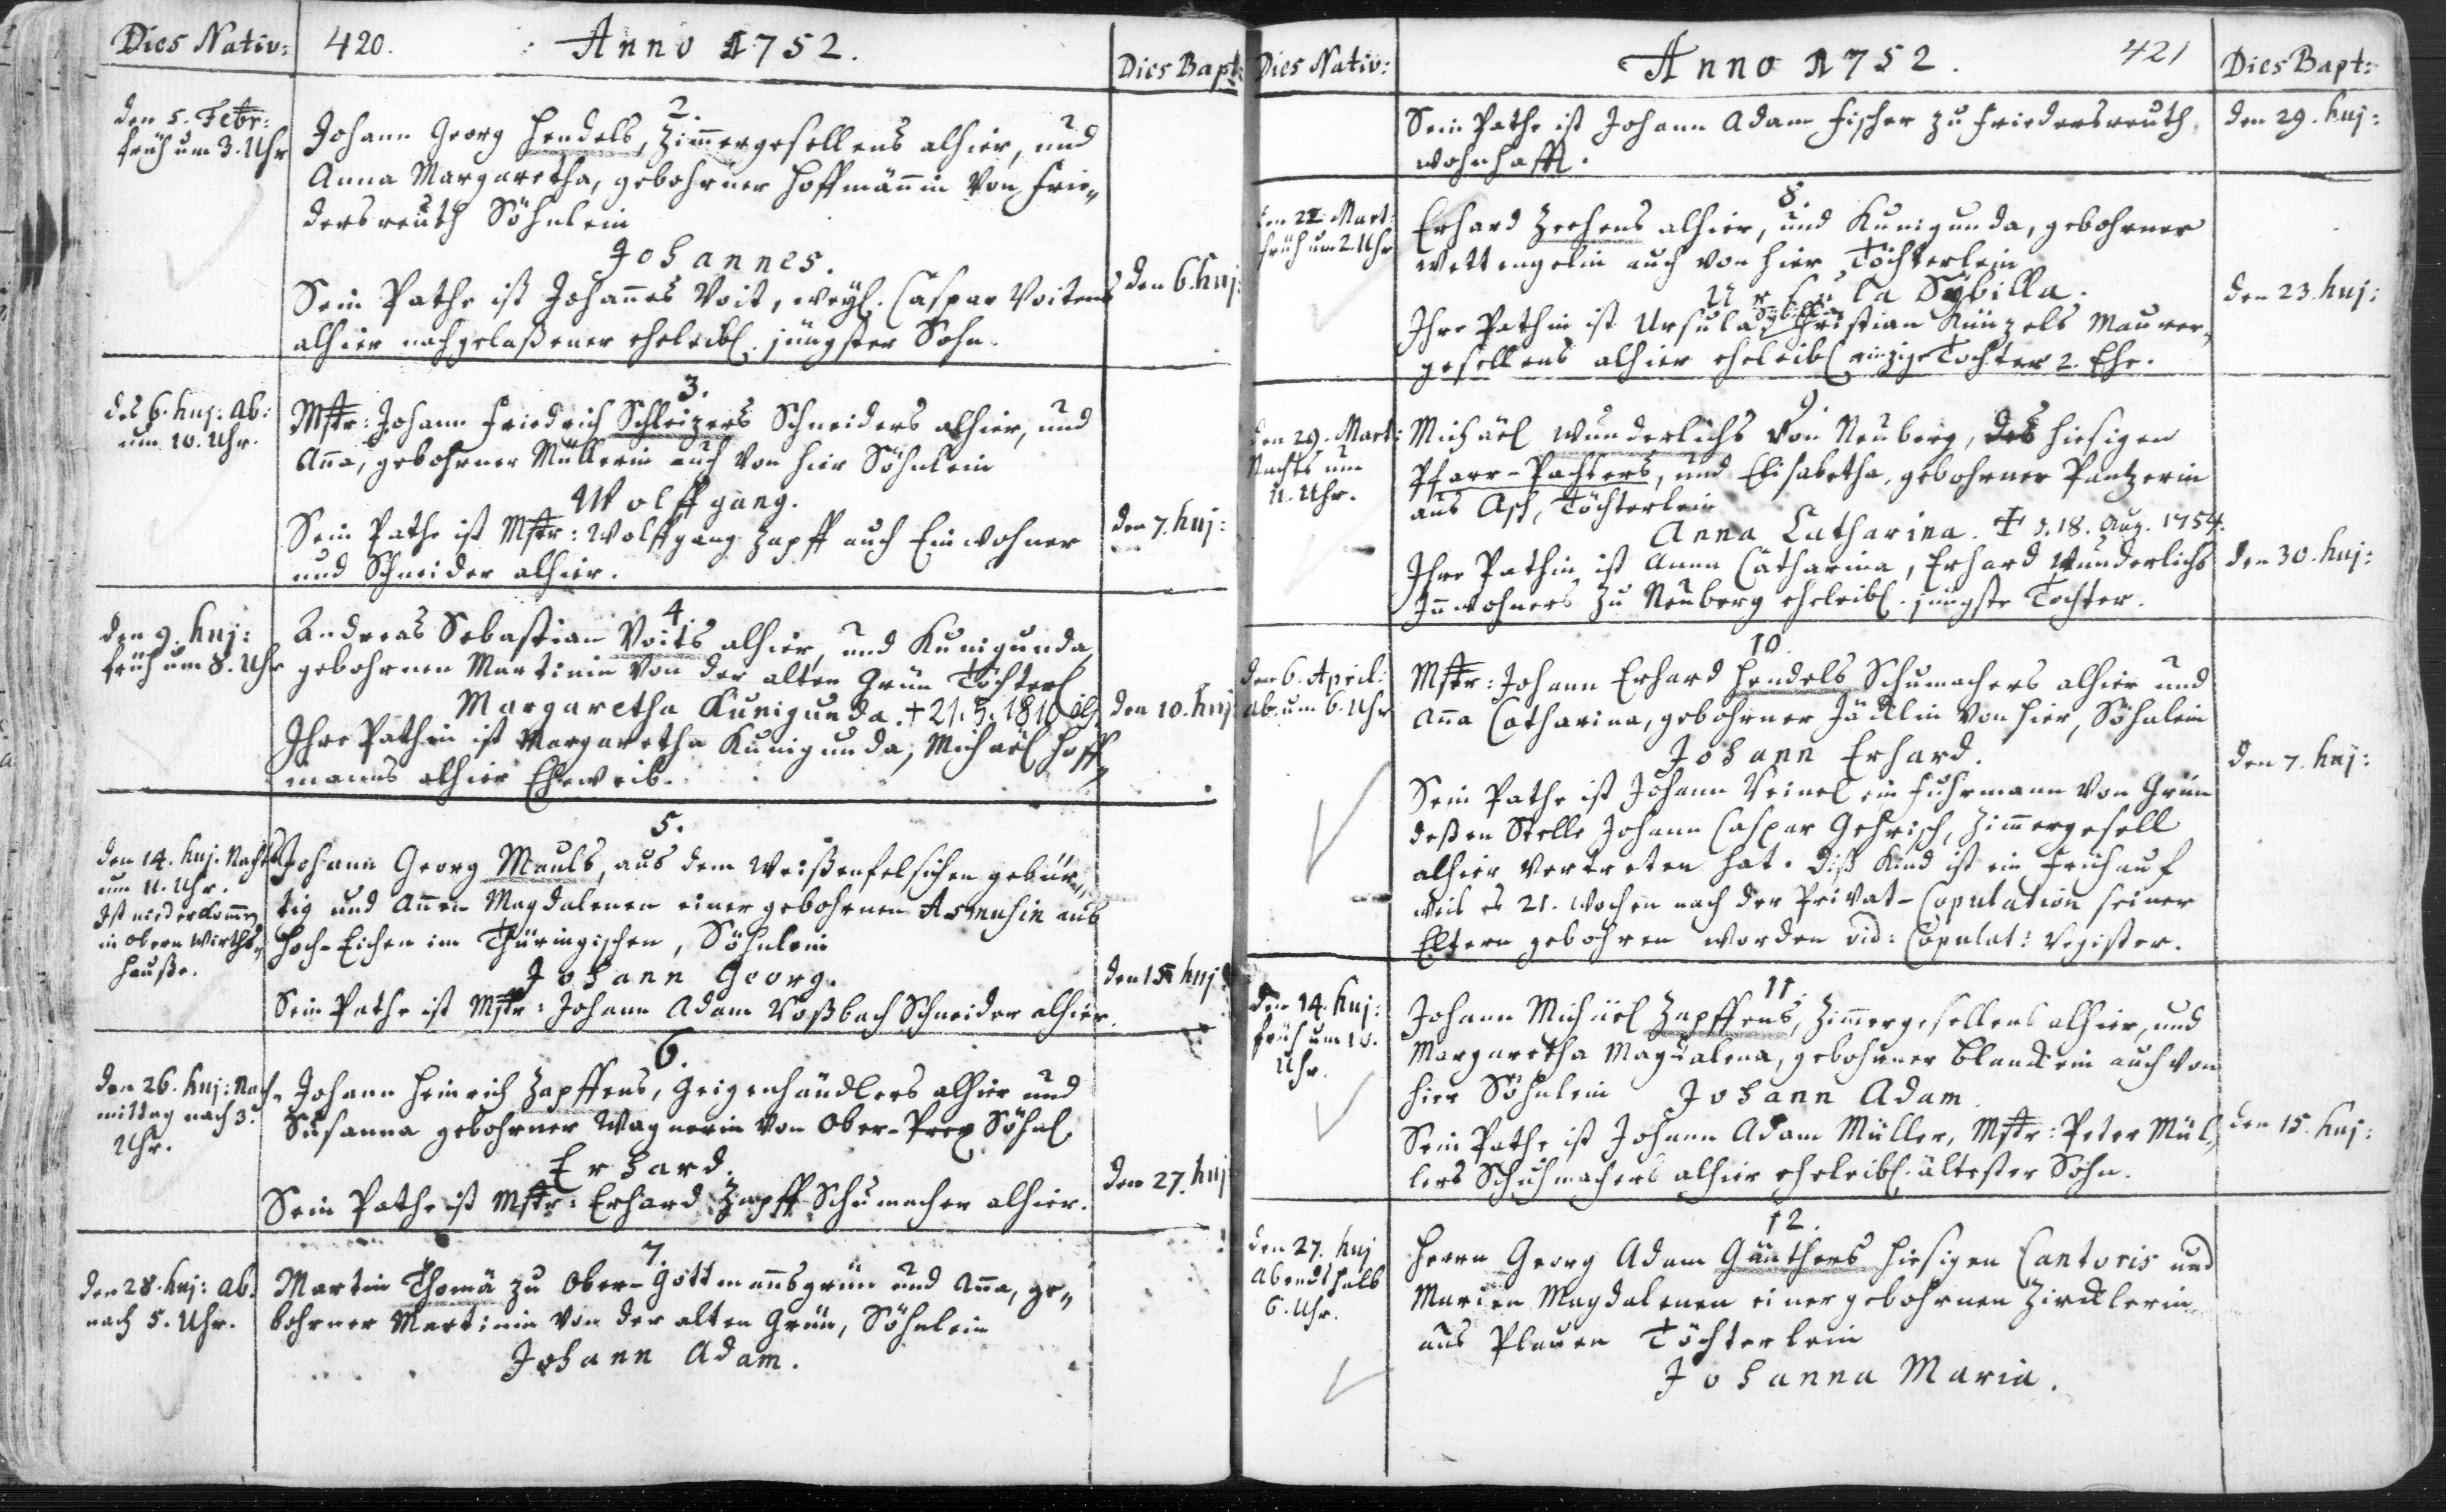 Dies Nativ: 420. Anno 1752. Dies Bapt:
2.
den 5. Febr: früh um 3. Uhr
Johann Georg Hendels, Zimmergesellens alhier, und
Anna Margaretha, gebohrner Hoffmännin von Frie-
dersreuth Söhnlein
Johannes.
Sein Pathe ist Johannes Voit, weyl. Caspar Voitens
alhier nachgelaßener eheleibl. jüngster Sohn.
den 6. huj:
3.
des 6. huj: Ab:
um 10. Uhr.
Mstr: Johann Friedrich Schleizers Schneiders alhier, und
Anna, gebohrner Müllerin auch von hier Söhnlein
Wolffgang.
Sein Pathe ist Mstr: Wolffgang Zapff auch Einwohner
und Schneider alhier.
den 7. huj:
4.
den 9. huj:
früh um 8. Uhr
Andreas Sebastian Voits alhier, und Kunigunda,
gebohrnen Martinin von der alten Grün Töchterl.
Margaretha Kunigunda. + 21. 5. 1810
Ihre Pathin ist Margaretha Kunigunda, Michaël Hoff-
manns alhier Eheweib.
den 10. huj:
5.
den 14. huj. Nachts
um 11. Uhr.
Ist niederkommen
in obern Wirths-
hauße.
Johann Georg Mauls, aus dem Weißenfelsischen gebür-
tig und Annen Magdalenen einer gebohrnen Asmusin aus
Hoch-Eichen im Thüringischen, Söhnlein
Johann Georg.
Sein Pathe ist Mstr: Johann Adam Roßbach Schneider alhier.
den 15 huj
6.
den 26. huj: Nach-
mittag nach 3.
Uhr.
Johann Heinrich Zapffens, Geigenhändlers alhier und
Susanna gebohrner Wagnerin von Ober-Prex Söhnl.
Erhard.
Sein Pathe ist Mstr: Erhard Zapff Schumacher alhier.
den 27. huj
7.
den 28. huj: Ab.
nach 5. Uhr.
Martin Thomä zu Ober-Gottmannsgrün und Anna, ge-
bohrner Martinin von der alten Grün, Söhnlein
Johann Adam.
Dies Nativ: Anno 1752. 421 Dies Bapt:
Sein Pathe ist Johann Adam Fischer zu Friedersreuth
wohnhafft.
den 29. huj:
8.
den 22. Mart:
früh um 2. Uhr
Erhard Zechens alhier, und Kunigunda, gebohrner
Wettengelin auch von hier Töchterlein
Ursula Sybilla.
Ihre Pathin ist Ursula Sybilla Christian Künzels Maurer-
gesellens alhier eheleibl. einzige Tochter 2. Ehe.
den 23. huj:
9.
den 29. Mart:
Nachts um
11. Uhr.
Michaël Wunderlichs von Neuberg, des hiesigen
Pfarr-Pachters, und Elisabetha, gebohrner Pantzerin
aus Asch, Töchterlein
Anna Catharina. + d. 18. Aug. 1754.
Ihre Pathin ist Anna Catharina, Erhard Wunderlichs
Innwohners zu Neuberg eheleibl. jüngste Tochter.
den 30. huj:
10.
den 6. April:
Ab. um 6. Uhr
Mstr: Johann Erhard Hendels Schumachers alhier und
Anna Catharina, gebohrner Jäcklin von hier, Söhnlein
Johann Erhard.
Sein Pathe ist Johann Veinel ein Fuhrmann von Grün
deßen Stelle Johann Caspar Gehrisch, Zimmergesell
alhier vertreten hat. Diß Kind ist ein Frühauf
weil es 21. Wochen nach der Privat-Copulation seiner
Eltern gebohren worden vid: Copulat: Register.
den 7. huj:
11.
den 14. huj:
früh um 10.
Uhr.
Johann Michael Zapffens, Zimmergesellens alhier, und
Margaretha Magdalena, gebohrner Blanckin auch von
hier Söhnlein Johann Adam
Sein Pathe ist Johann Adam Müller, Mstr: Peter Mül-
lers Schuhmachers alhier eheleibl. ältester Sohn.
den 15. huj:
12.
den 27. huj
Abends halb
6. Uhr.
Herrn Georg Adam Günthers hiesigen Cantoris und
Marien Magdalenen einer gebohrnen Zircklerin
aus Plauen Töchterlein
Johanna Maria.